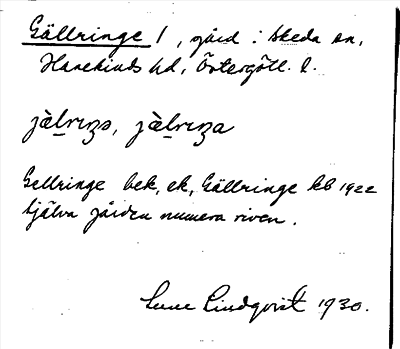 Gällringe 1, gård i Skeda sn,
Hanekinds hd, Östergötl. l.
jä̀lrıŋə, jä̀lrıŋa
Gellringe bek, ek, Gällringe kb 1922
Själva gården numera riven.
Sune Lindqvist 1930.